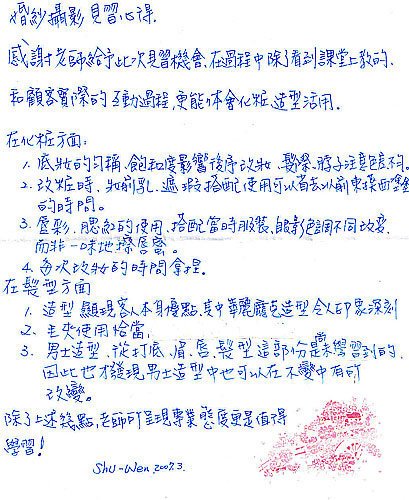 婚紗攝影見習心得.
感謝老師給予此次見習機會,在過程中除了看到課堂上教的.
和顧客實際的互動過程,更能体會化粧造型活用.
在化粧方面:
1. 底妝的勻稱、飽和度影響後序改妝、髮際、脖子注意色差不同。
2. 改粧時、妝前乳、遮瑕搭配使用可以省去以前東抹西擦
的時間。
3. 唇彩、腮紅的使用、搭配當時服裝、眼影色調不同改变,
而非一味地擦唇蜜。
4. 每次改妝的時間拿捏.
在髮型方面
1. 造型顯現客人本身優點、其中華麗龐克造型令人印象深刻
2. 毛夾使用恰當,
3. 男士造型、從打底、眉、唇、髮型這部份是未學習到的.
因此也才發現男士造型中也可以在不變中有所
改變。
除了上述幾點,老師所呈現專業態度更是值得
學習!
Shu-Wen 2009.3.